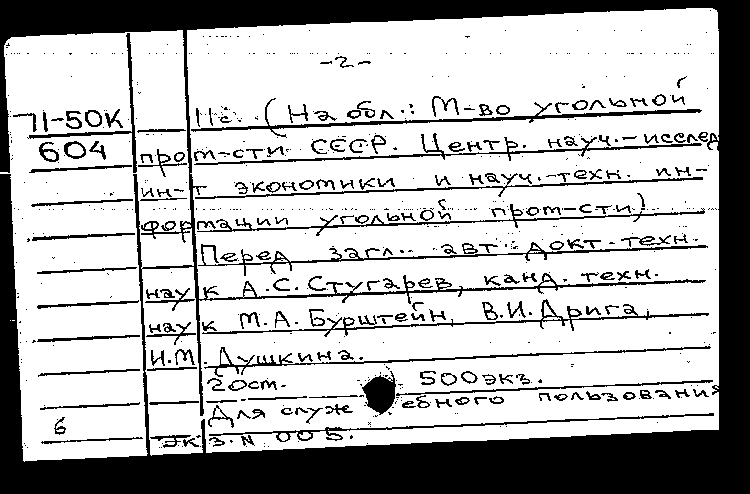 -2-
71-50К
604
(На обл.: М-во угольной
пром-сти СССР. Центр. науч.-исслед
ин-т экономики и науч.-техн. ин-
формации угольной пром-сти)
Перед загл.: авт. докт. техн.
наук А.С. Стугарев, канд. техн.
наук М.А. Бурштейн, В.И. Дрига,
И.М. Душкина.
20ст. 500экз.
Для служебного пользования
экз. N 005.
6